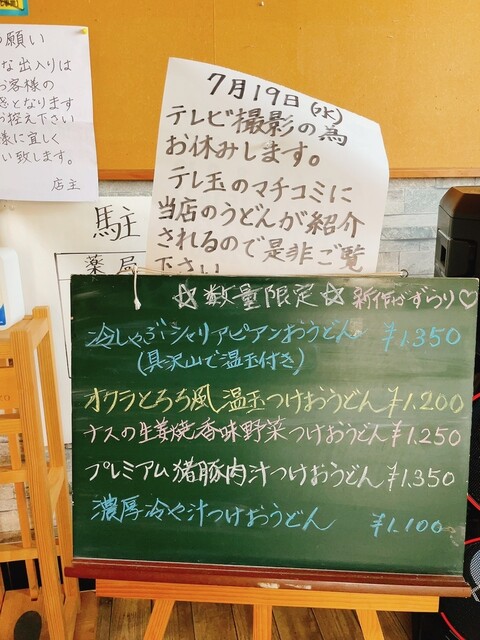 願い
な出入りは
お客様の
となります
お控え下さい
様に宜しく
い致します。
店主
7月19日(水)
テレビ撮影の為
お休みします。
テレ玉のマチコミに
当店のうどんが紹介
されるので是非ご覧
下さい
駐
薬局
☆数量限定☆ 新作がずらり♡
冷しゃぶシャリアピアンおうどん ¥1.350
(具沢山で温玉付き)
オクラとろろ風温玉つけおうどん ¥1.200
ナスの生姜焼香味野菜つけおうどん ¥1.250
プレミアム猪豚肉汁つけおうどん ¥1.350
濃厚冷や汁つけおうどん ¥1.100